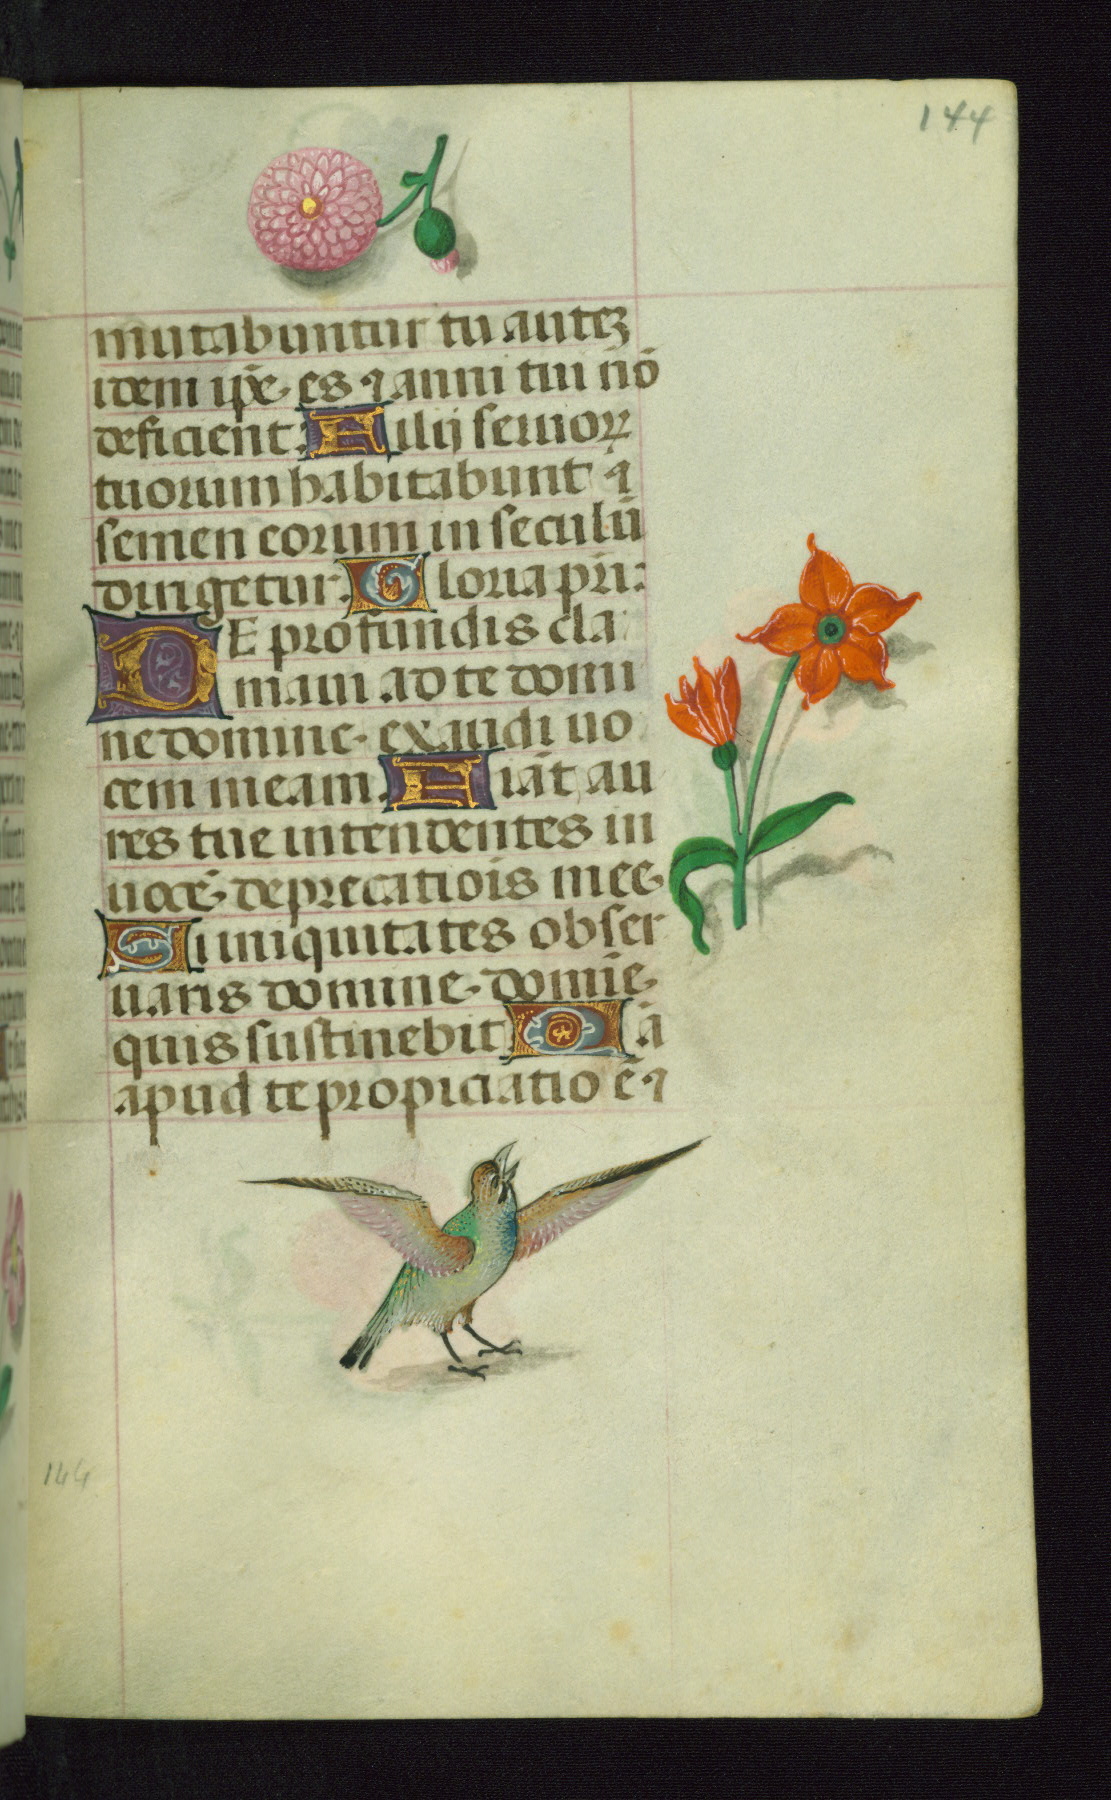 144
mutabuntur tu autez
idem ip̄e· es ⁊ anni tui nō
deficient: Filij seruoꝝ
tuorum habitabunt ⁊
semen eorum in seculū
dirigetur. Gloria pr̄i:
DE profundis cla
maui ad te domi
ne domine· exaudi uo
cem meam. Fiāt au
res tue intendentes in
uocē· deprecatiōis mee·
Si iniquitates obser
uaris domine· domīe·
quis sustinebit. Qā
apud te propiciatio ē ⁊
144